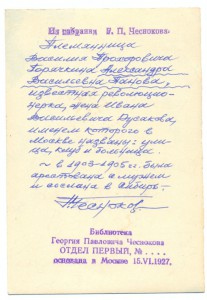 Из собрания Г. П. Чеснокова
Племянница
Василия Прохоровича
Горячкина Александра
Васильевна Панова,
известная революцио-
нерка, жена Ивана
Васильевича Русакова,
именем которого в
Москве названы: ули-
ца, клуб и больница.
~ в 1903-1905 гг. была
арестована с мужем
и сослана в Сибирь.
Чесноков
Библиотека
Георгия Павловича Чеснокова
ОТДЕЛ ПЕРВЫЙ, № ....
основана в Москве 15.VI.1927.